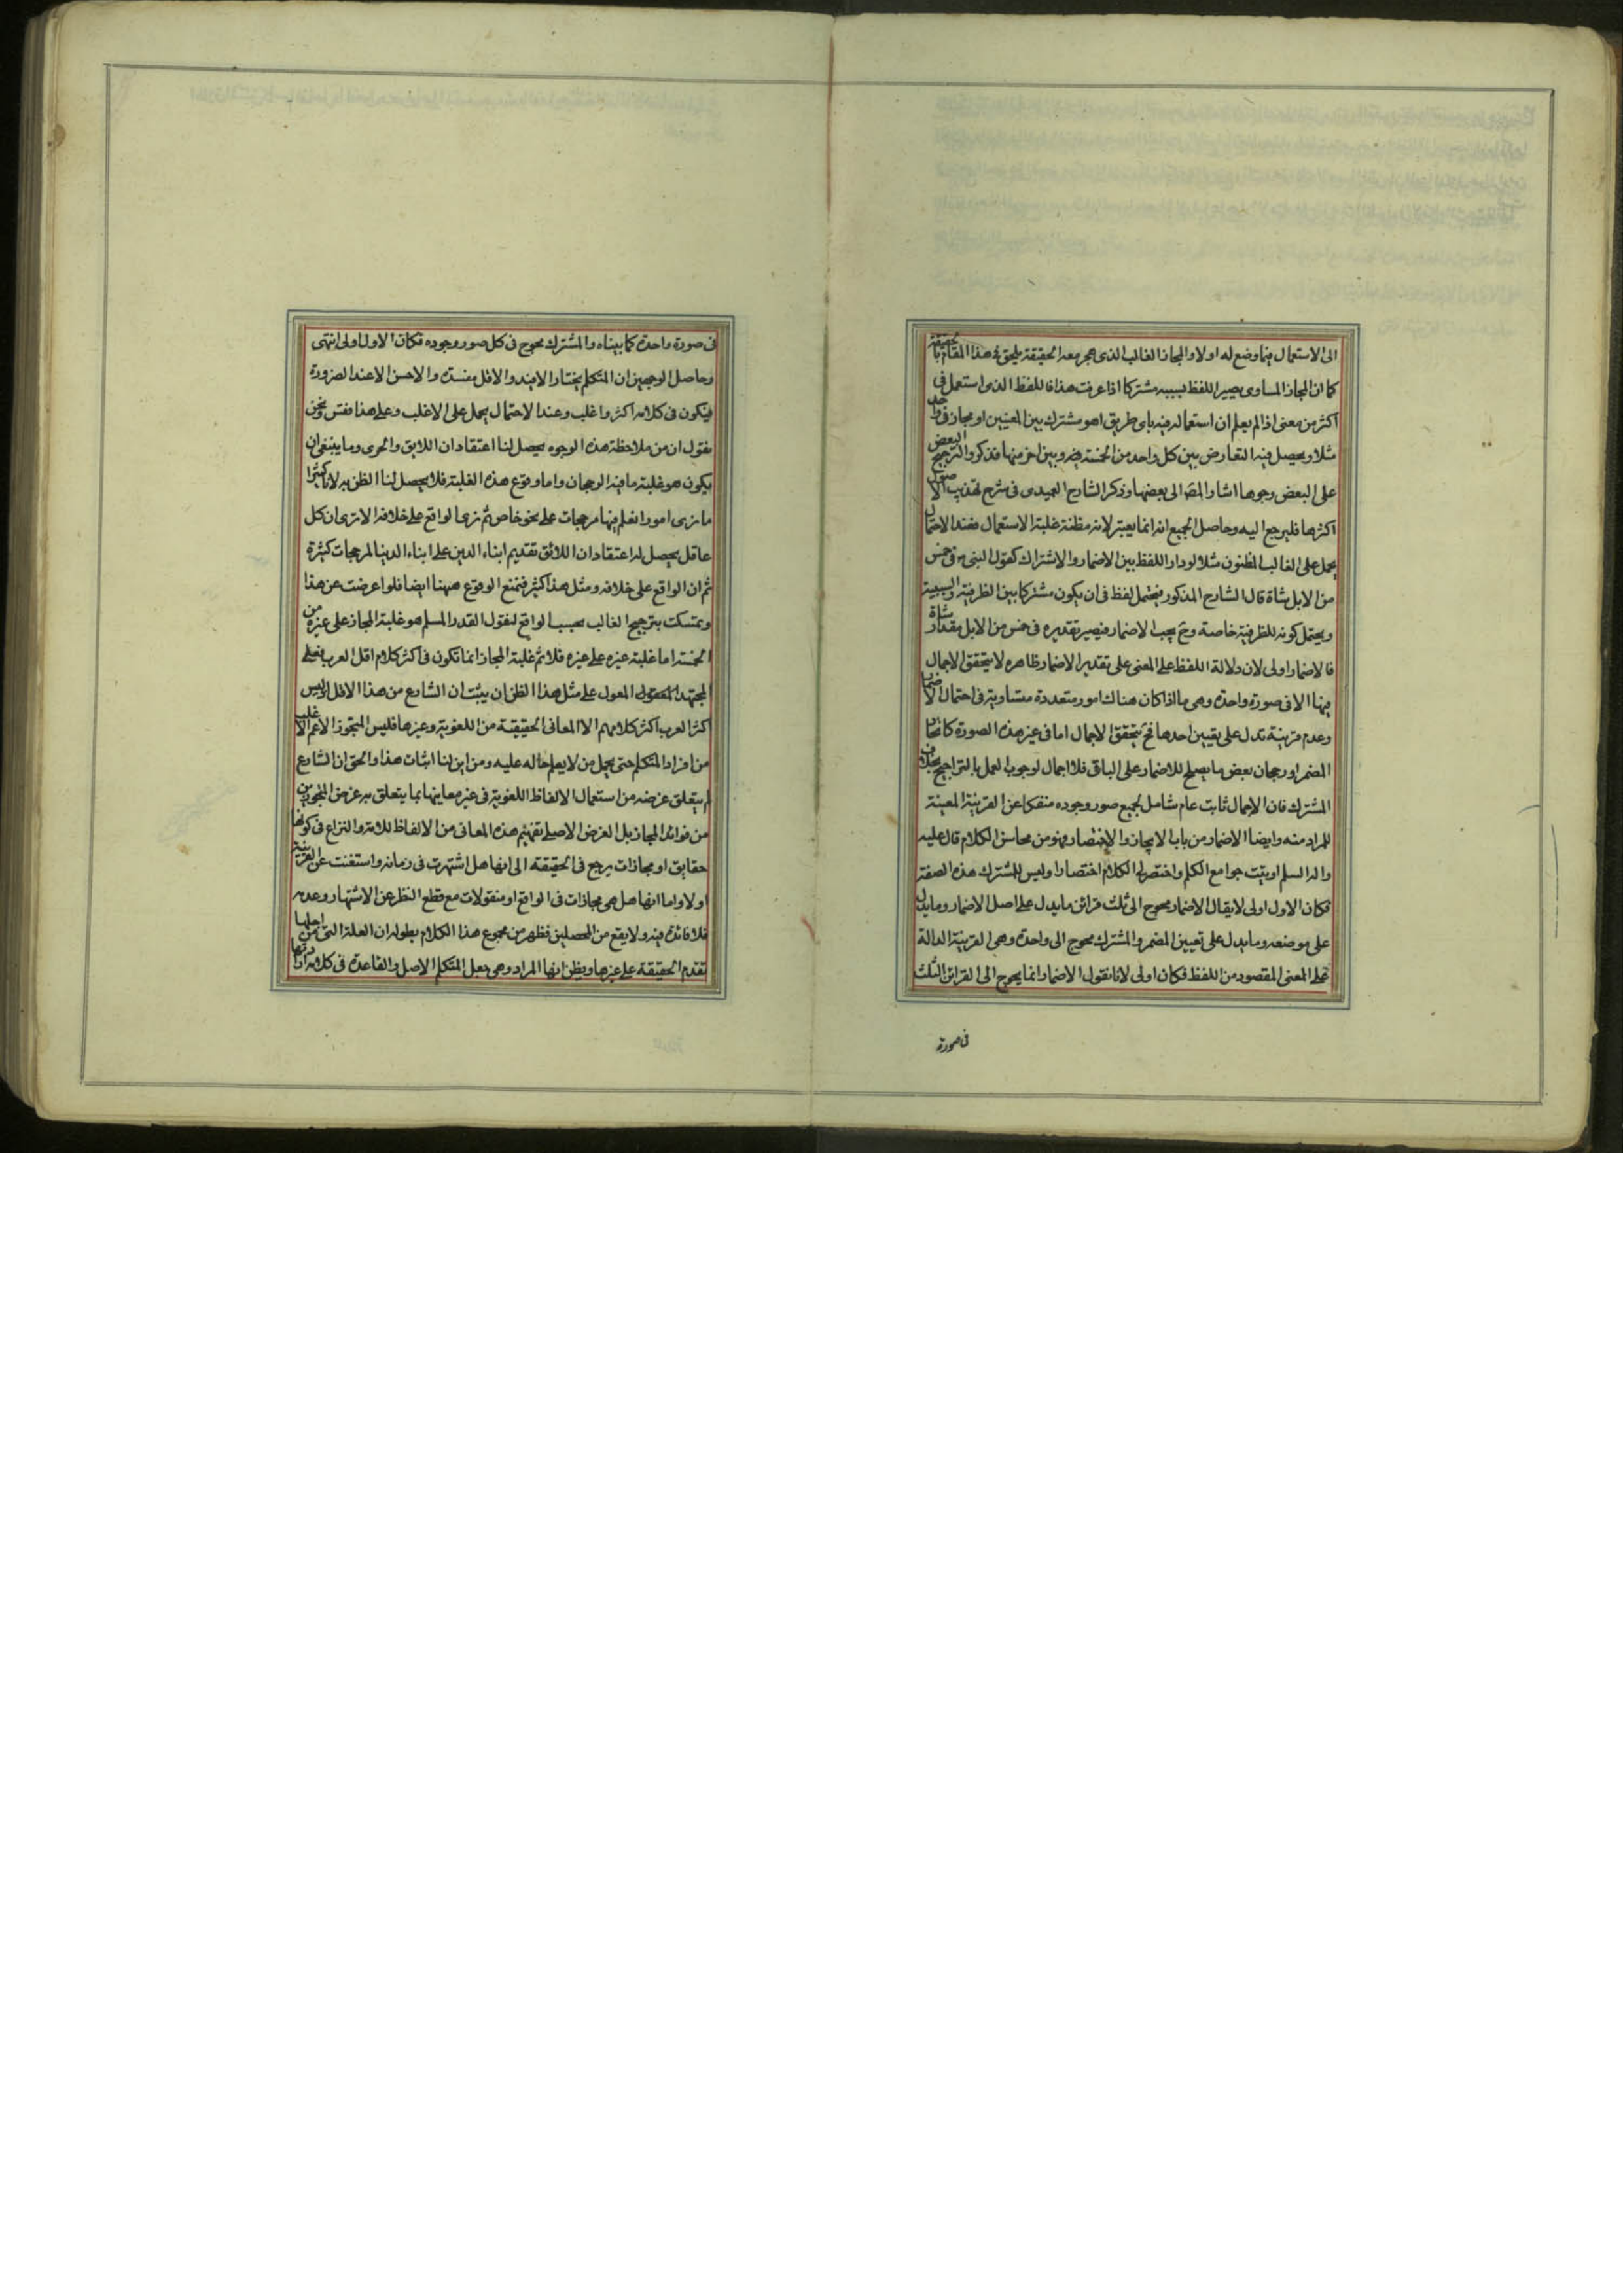 الى الاستعمال فيما وضع له اولا والمجاز الغالب الذى هجر معه الحقيقة يلحق فى هذا المقام بالحقيقة
كما ان المجاز المساوى يصير اللفظ بسببه مشتركا اذا عرفت هذا فاللفظ الذى استعمل فى
اكثر من معنى اذا لم يعلم ان استعماله فيه باى طريق اهو مشترك بين المعنيين او مجاز فى واحد
مثلا ويحصل فيه التعارض بين كل واحد من الخمسة فيه وبين اخر منها فذكروا لترجيح البعض
على البعض وجوها اشار المص الى بعضها وذكر الشارح العميدى فى شرح تهذيب الاصول
اكثرها فليرجع اليه وحاصل الجميع انه انما يعتبر لانه مظنة غلبة الاستعمال فعند الاحتمال
يحمل على الغالب المظنون مثلا لو دار اللفظ بين الاضمار والاشتراك كقول النبى ص فى خمس
من الابل شاة قال الشارح المذكور فيحتمل لفظ فى ان يكون مشتركا بين الظرفية والسببية
ويحتمل كونه للظرفية خاصة وح يجب الاضمار فيصير تقديره فى خمس من الابل مقدار شاة
فالاضمار اولى لان دلالة اللفظ على المعنى على تقدير الاضمار ظاهره لا يتحقق الاجمال
فيها الا فى صورة واحدة وهى ما اذا كان هناك امور متعددة متساوية فى احتمال الاضمار
وعدم قرينة تدل على تعيين احدها فح يتحقق الاجمال اما فى غير هذه الصورة كاتحاد
المضمر او رجحان بعض ما يصلح للاضمار على الباقى فلا اجمال لوجوب العمل بالتراجيح بخلاف
المشترك فان الاجمال ثابت عام شامل لجميع صور وجوده منفكا عن القرينة المعينة
للمراد منه وايضا الاضمار من باب الايجاز والاختصار فهو من محاسن الكلام قال عليه
واله السلم اوتيت جوامع الكلم واختصر لى الكلام اختصارا وليس للمشترك هذه الصفة
فكان الاول اولى لا يقال الاضمار محوج الى ثلث قرائن ما يدل على اصل الاضمار وما يدل
على موضعه وما يدل على تعيين المضمر والمشترك محوج الى واحدة وهى القرينة الدالة
على المعنى المقصود من اللفظ فكان اولى لانا نقول الاضمار انما يحوج الى القرائن الثلث
فى صورة
فى صورة واحدة كما بيناه والمشترك محوج فى كل صور وجوده فكان الاول اولى انتهى
وحاصل الوجهين ان المتكلم يختار الافيد والاقل مفسدة والاحسن الا عند الضرورة
فيكون فى كلامه اكثر واغلب وعند الاحتمال يحمل على الاغلب وعلى هذا فقس ونحن
نقول ان من ملاحظة هذه الوجوه يحصل لنا اعتقاد ان اللايق والحرى وما ينبغى ان
يكون هو غلبة ما فيه الرجحان واما وقوع هذه الغلبة فلا يحصل لنا الظن به لانا كثيرا
ما نرى امورا نعلم فيها مرجحات على نحو خاص ثم نرى الواقع على خلافه الا ترى ان كل
عاقل يحصل له اعتقاد ان اللائق تقديم ابناء الدين على ابناء الدنيا لمرجحات كثيرة
ثم ان الواقع على خلافه ومثل هذا كثير فنمنع الوقوع ههنا ايضا فلو اعرضت عن هذا
وتمسكت بترجيح الغالب بحسب الواقع لنقول القدر المسلم هو غلبة المجاز على غيره من
الخمسة اما غلبة غيره على غيره فلا ثم غلبة المجاز انما تكون فى اكثر كلام اقل العرب فعلى
المجتهد المعول على مثل هذا الظن ان يثبت ان الشارع من هذا الاقل وليس
اكثر العرب اكثر كلامهم الا المعانى الحقيقية من اللغوية وغيرها فليس المتجوز الاعم الاغلب
من افراد المتكلم حتى يحمل من لا يعلم حاله عليه ومن اين لنا اثبات هذا والحق ان الشارع
لم يتعلق غرضه من استعمال الالفاظ اللغوية فى غير معاينها بما يتعلق به غرض المتجوزين
من فوائد المجاز بل الغرض الاصلى تفهيم هذه المعانى من الالفاظ للامة والنزاع فى كونها
حقايق او مجازات يرجع فى الحقيقة الى انها هل اشتهرت فى زمانه واستغنت عن القرينة
او لا واما انها هل هى مجازات فى الواقع او منقولات مع قطع النظر عن الاشتهار وعدمه
فلا فائدة فيه ولا يقع من المحصلين فظهر من مجموع هذا الكلام بطوله ان العلة التى من اجلها
تقدم الحقيقة على غيرها ويظن انها المراد وهى جعل المتكلم الاصل والقاعدة فى كلامه ارادتها